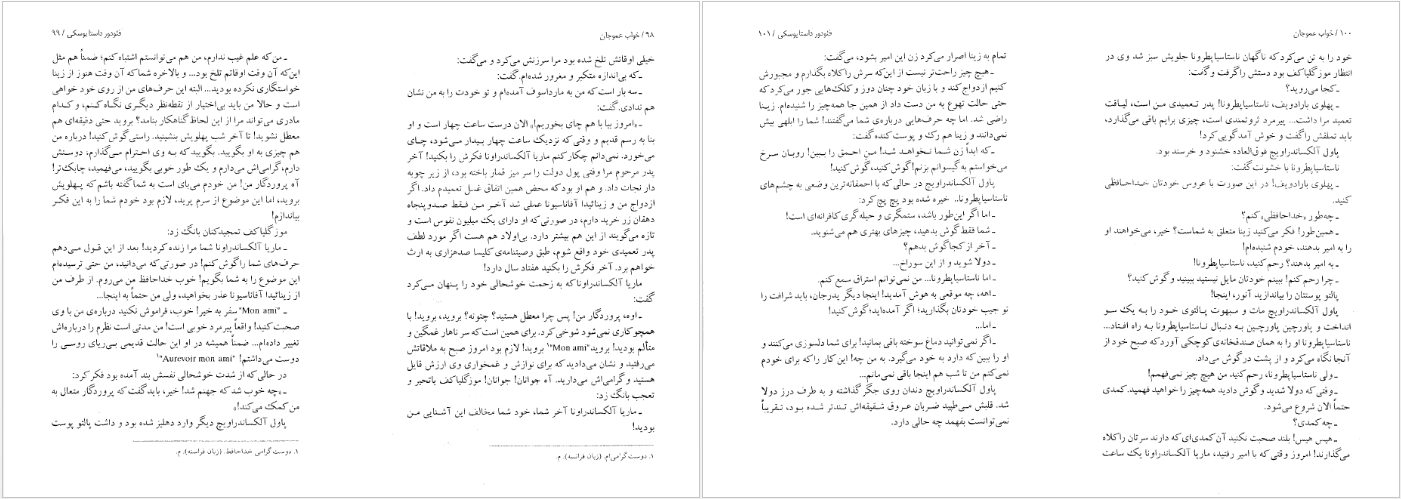 ۹۸ / خواب عموجان
خیلی اوقاتش تلخ شده بود مرا سرزنش می‌کرد و می‌گفت:
ـ که بی‌اندازه متکبر و مغرور شده‌ام. گفت:
ـ سه بار است که من به مارداسوف آمده‌ام و تو خودت را به من نشان
هم ندادی. گفت:
ـ «امروز بیا با هم چای بخوریم!» الان درست ساعت چهار است و او
بنا به رسم قدیم و وقتی که نزدیک ساعت چهار بیدار می‌شود، چای
می‌خورد. نمی‌دانم چکار کنم ماریا آلکساندراونا فکرش را بکنید! آخر
پدر مرحوم مرا وقتی پول دولت را سر میز قمار باخته بود، از زیر چوبه
دار نجات داد. و هم او بود که محض همین اتفاق غسل تعمیدم داد. اگر
ازدواج من و زینائیدا آفاناسیونا عملی شد آخر من فقط صد و پنجاه
دهقان زر خرید دارم، در صورتی که او دارای یک میلیون نفوس است و
تازه می‌گویند از این هم بیشتر دارد. بی‌اولاد هم هست اگر مورد لطف
پدر تعمیدی خود واقع شوم، طبق وصیتنامه‌ی کلیسا صدهزاری به ارث
خواهم برد. آخر فکرش را بکنید هفتاد سال دارد!
ماریا آلکساندراونا که به زحمت خوشحالی خود را پنهان می‌کرد
گفت:
ـ اوه، پروردگار من! پس چرا معطل هستید؟ چتونه؟ بروید، بروید! با
همچو کاری نمی‌شود شوخی کرد. برای همین است که سر ناهار غمگین و
متألم بودید! بروید "Mon ami"۱ بروید! لازم بود امروز صبح به ملاقاتش
می‌رفتید و نشان می‌دادید که برای نوازش و غمخواری وی ارزش قایل
هستید و گرامی‌اش می‌دارید. آه جوانان! جوانان! موزگلیاکف باتحیر و
تعجب بانگ زد:
ـ ماریا آلکساندراونا آخر شما، خود شما مخالف این آشنایی من
بودید!
۱. دوست گرامی‌ام. (زبان فرانسه). م.
فئودور داستایوسکی / ۹۹
ـ من که علم غیب ندارم، من هم می‌توانستم اشتباه کنم؛ ضمناً هم مثل
این‌که آن وقت اوقاتم تلخ بود... و بالاخره شما که آن وقت هنوز از زینا
خواستگاری نکرده بودید... البته این حرف‌های من از روی خود خواهی
است و حالا من باید بی‌اختیار از نقطه‌نظر دیگری نگاه کنم، و کدام
مادری می‌تواند مرا از این لحاظ گناهکار بنامد؟ بروید حتی دقیقه‌ای هم
معطل نشوید! تا آخر شب پهلویش بنشینید. راستی گوش کنید! درباره من
هم چیزی به او بگویید. بگویید که به وی احترام می‌گذارم، دوستش
دارم، گرامی‌اش می‌دارم و یک طور خوبی بگویید، می‌فهمید، چابک‌تر!
آه پروردگار من! من خودم می‌بای است به شما گفته باشم که پهلویش
بروید، اما این موضوع از سرم پرید، لازم بود خودم شما را به این فکر
بیاندازم!
موزگلیاکف تمجیدکنان بانگ زد:
ـ ماریا آلکساندراونا شما مرا زنده کردید! بعد از این قول می‌دهم
حرف‌های شما را گوش کنم! در صورتی که می‌دانید، من حتی ترسیده‌ام
این موضوع را به شما بگویم! خوب خداحافظ من می‌روم. از طرف من
از زینائیدا! آفاناسیونا عذر بخواهید، ولی من حتماً به اینجا...
ـ "Mon ami" سفر به خیر! خوب، فراموش نکنید درباره‌ی من با وی
صحبت کنید! واقعاً پیرمرد خوبی است! من مدتی است نظرم را درباره‌اش
تغییر داده‌ام... ضمناً همیشه در او این حالت قدیمی بی‌ریای روسی را
دوست می‌داشتم! "Aurevoir mon ami"۱
در حالی که از شدت خوشحالی نفسش بند آمده بود فکر کرد:
ـ «چه خوب شد که جهنم شد! خیر، باید گفت که پروردگار متعال به
من کمک می‌کند!»
پاول آلکساندراویچ دیگر وارد دهلیز شده بود و داشت پالتو پوست
۱. دوست گرامی خداحافظ. (زبان فرانسه). م.
۱۰۰ / خواب عموجان
خود را به تن می‌کرد که ناگهان ناستاسیاپطرونا جلویش سبز شد وی در
انتظار موزگلیاکف بود دستش را گرفت و گفت:
ـ کجا می‌روید؟
ـ پهلوی بارادویف، ناستاسیاپطرونا! پدر تعمیدی من است، لیاقت
تعمید مرا داشت... پیرمرد ثروتمندی است، چیزی برایم باقی می‌گذارد،
باید تملقش را گفت و خوش آمدگویی کرد!
پاول آلکساندراویچ فوق‌العاده خشنود و خرسند بود.
ناستاسیاپطرونا با خشونت گفت:
ـ پهلوی بارادویف! در این صورت با عروس خودتان خداحافظی
کنید.
ـ چه‌طور «خداحافظی» کنم؟
ـ همین‌طور! فکر می‌کنید زینا متعلق به شماست؟ خیر، می‌خواهند او
را به امیر بدهند، خودم شنیده‌ام!
ـ به امیر بدهند؟ رحم کنید، ناستاسیاپطرونا!
ـ چرا رحم کنم! ببینم خودتان مایل نیستید ببینید و گوش کنید؟
پالتو پوستتان را بیاندازید آنور، اینجا!
پاول آلکساندراویچ مات و مبهوت پالتوی خود را به یک سو
انداخت و پاورچین پاورچین به دنبال ناستاسیاپطرونا به راه افتاد...
ناستاسیاپطرونا او را به همان صندقخانه‌ی کوچکی آورد که صبح خود از
آنجا نگاه می‌کرد و از پشت در گوش می‌داد.
ـ ولی ناستاسیاپطرونا، رحم کنید، من هیچ چیز نمی‌فهمم!
ـ وقتی که دولا شدید و گوش دادید همه‌چیز را خواهید فهمید. کمدی
حتماً الان شروع می‌شود.
ـ چه کمدی؟
ـ هیس هیس! بلند صحبت نکنید آن کمدی‌ای که دارند سرتان را کلاه
می‌گذارند! امروز وقتی که با امیر رفتید، ماریا آلکساندراونا یک ساعت
فئودور داستایوسکی / ۱۰۱
تمام به زینا اصرار می‌کرد زن این امیر بشود، می‌گفت:
ـ هیچ چیز راحت‌تر نیست از این‌که سرش را کلاه بگذارم و مجبورش
کنیم ازدواج کند و با زبان خود چنان دوز و کلک‌هایی جور می‌کرد که
حتی حالت تهوع به من دست داد از همین جا همه‌چیز را شنیده‌ام. زینا
راضی شد. اما چه حرف‌هایی درباره‌ی شما می‌گفتند! شما را ابلهی بیش
نمی‌دانند و زینا هم رک و پوست کنده گفت:
ـ که ابداً زن شما نخواهد شد! من احمق را ببین! روبان سرخ
می‌خواستم به گیسوانم بزنم! گوش کنید، گوش کنید!
پاول آلکساندراویچ در حالی که با احمقانه‌ترین وضعی به چشم‌های
ناستاسیاپطرونا.. خیره شده بود پچ پچ کرد:
ـ اما اگر این‌طور باشد، ستمگری و حیله‌گری کافرانه‌ای است!
ـ شما فقط گوش بدهید، چیزهای بهتری هم می‌شنوید.
ـ آخر از کجا گوش بدهم؟
ـ دولا شوید و از این سوراخ...
ـ اما ناستاسیاپطرونا... من نمی‌توانم استراق سمع کنم.
ـ اهه، چه موقعی به هوش آمدید! اینجا دیگر پدرجان، باید شرافت را
تو جیب خودتان بگذارید؛ اگر آمده‌اید، گوش کنید!
ـ اما...
ـ اگر نمی‌توانید دماغ سوخته باقی بمانید! برای شما دلسوزی می‌کنند و
او را ببین که دارد به خود می‌گیرد. به من چه! این کار را که برای خودم
نمی‌کنم من تا شب هم اینجا باقی نمی‌مانم...
پاول آلکساندراویچ دندان روی جگر گذاشته و به طرف درز دولا
شد. قلبش می‌طپید ضربان عروق شقیقه‌اش تندتر شده بود، تقریباً
نمی‌توانست بفهمد چه حالی دارد.